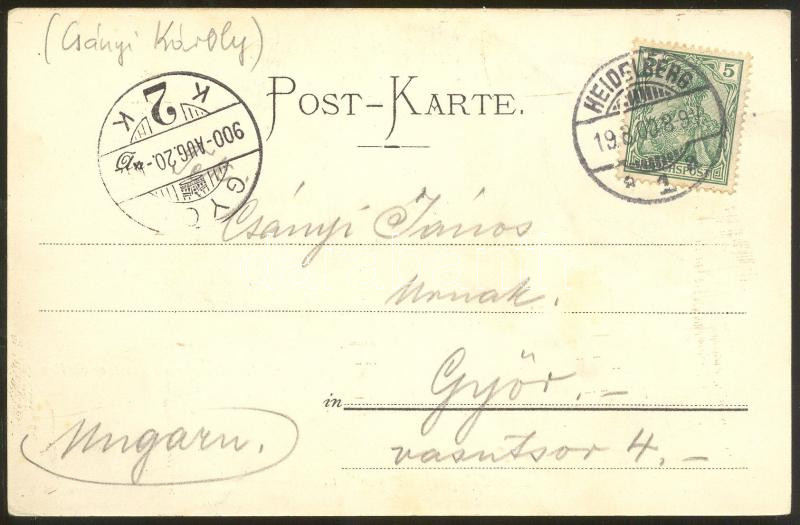 (Csányi Károly)
POST-KARTE.
HEIDELBERG
19.8.00.8-9V.
1
5
REICHSPOST
GYŐ
900-AUG.20.
K 2 K
Csányi János
Urnak.
in Győr.-
Ungarn.
vasutsor 4.-